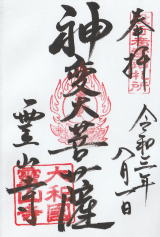 奉拝
令和二年
八月一日
神変大菩薩
霊山寺
大和國
霊山寺